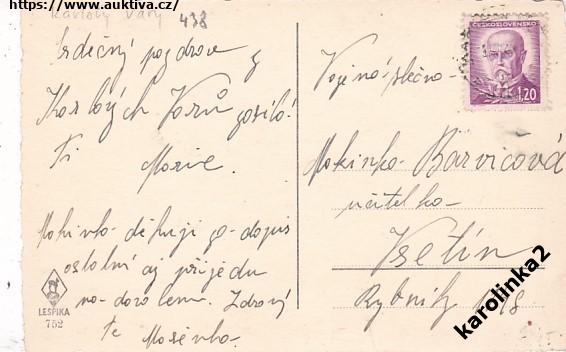 https://www.auktiva.cz/
Karlovy Vary 438
Srdečný pozdrav z
Karlových Varů posílá
Ti Marie.
děkuji za dopis
ostatní až přijedu
na dovolenou. Zdraví
Tě
LESPIKA
752
ČESKOSLOVENSKO
1,20
Vážená slečna
Barvicová
učitelka
Vsetín
Rybníky
karolinka2